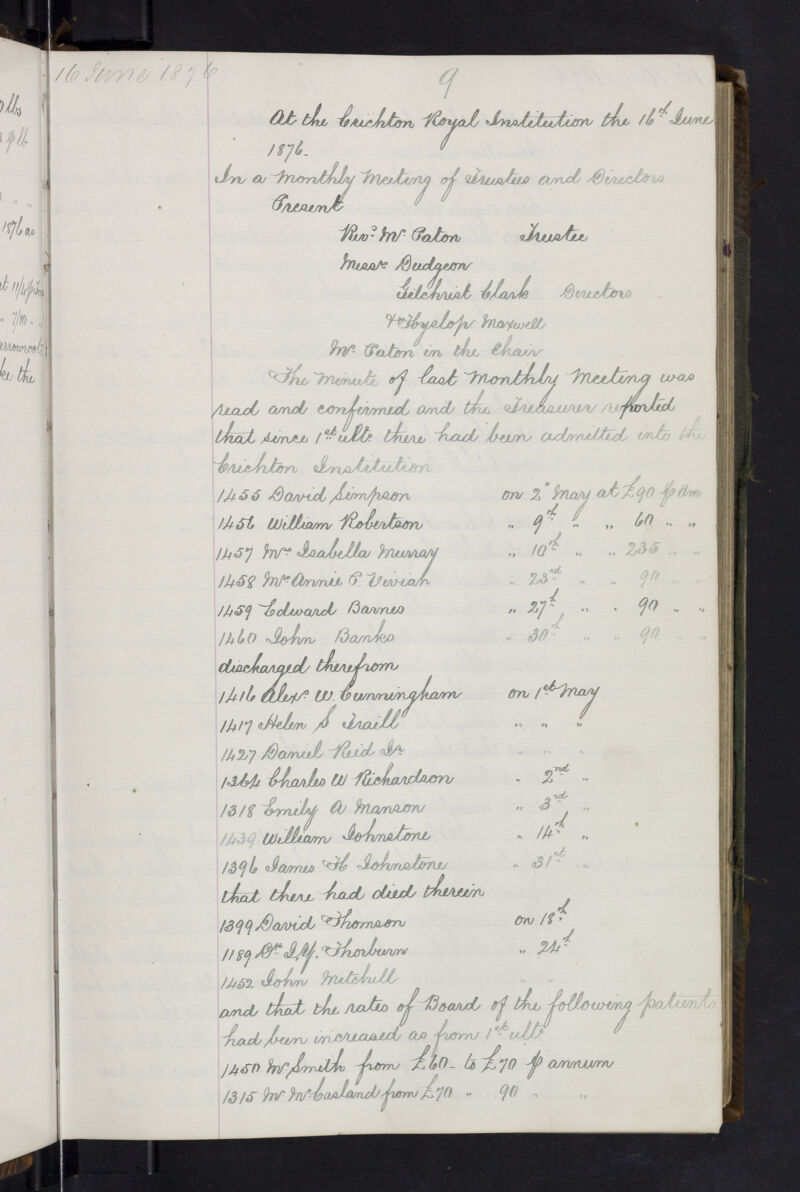 16 June 1876
9
At the Crichton Royal Institution the 16th June
1876.
In a Monthly Meeting of Trustees and Directors
Present
Revd Mr Paton Trustee
Messrs Dudgeon
Gilchrist Clark Directors
& Hyslop Maxwell
Mr Paton in the Chair
The Minute of last Monthly Meeting was
read and confirmed and the Treasurer reported
that since 1st ulto there had been admitted into the
Crichton Institution
1455 David Simpson on 2d May at £90 ⅌ Am
1456 William Robertson " 9th " " 60 " "
1457 Mrs Isabella Murray " 10th " " 235 " "
1458 Mrs Annie P. Vivian " 23rd " " 90 " "
1459 Edward Barnes " 27th " " 90 " "
1460 John Banks " 30th " " 90 " "
discharged therefrom
1416 Alexr W. Cunningham on 1st May
1417 Helen S Traill " " "
1427 Daniel Reid Jr " " "
1364 Charles W Richardson " 2nd "
1318 Emily A Manson " 3rd "
1439 William Johnstone " 14th "
1396 James H Johnstone " 31st "
that there had died therein
1399 David Thomson on 18th
1189 Dr J.Y. Thorburn " 24th
1452 John Mitchell " "
and that the rates of Board of the following patients
had been increased as from 1st ulto
1450 Mr Smith from £60 to £70 ⅌ annum
1315 Mr McCasland from £70 " 90 " "
0 lbs
3 ⅌ lb
" "
1876 as
at 11/4 ⅌
" 7/10 "
arrowroot
ke the